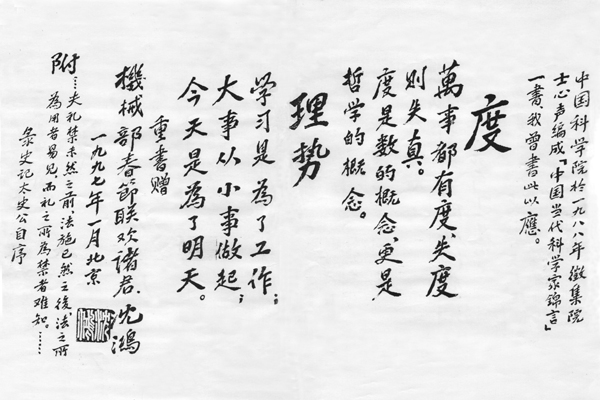 中国科学院於一九八八年徵集院
士心声編成「中国当代科学家錦言」
一書我曾書此以應。
度
萬事都有度、失度
則失真。
度是数的概念、更是
哲学的概念。
理势
学习是為了工作；
大事从小事做起；
今天是為了明天。
重書赠
機械部春節联欢諸君、沈鴻
一九九七年一月北京
附：…夫礼禁未然之前，法施已然之後，法之所
為用者易見而礼之所為禁者难知。……
录史记太史公自序